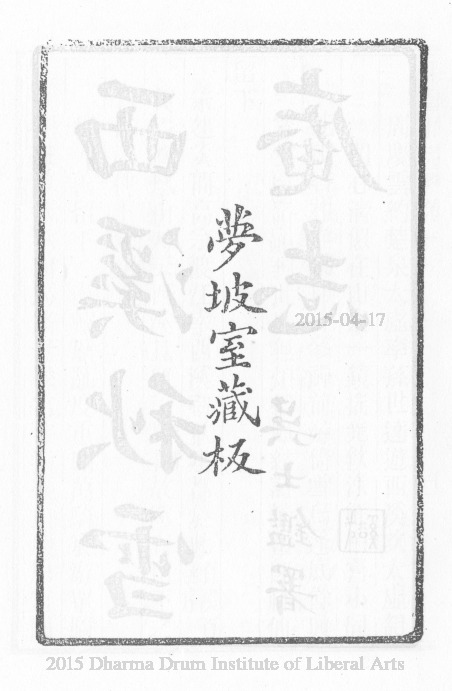 夢坡室藏板
西溪秋雪
庵志
吳士鑑署
2015-04-17
2015 Dharma Drum Institute of Liberal Arts